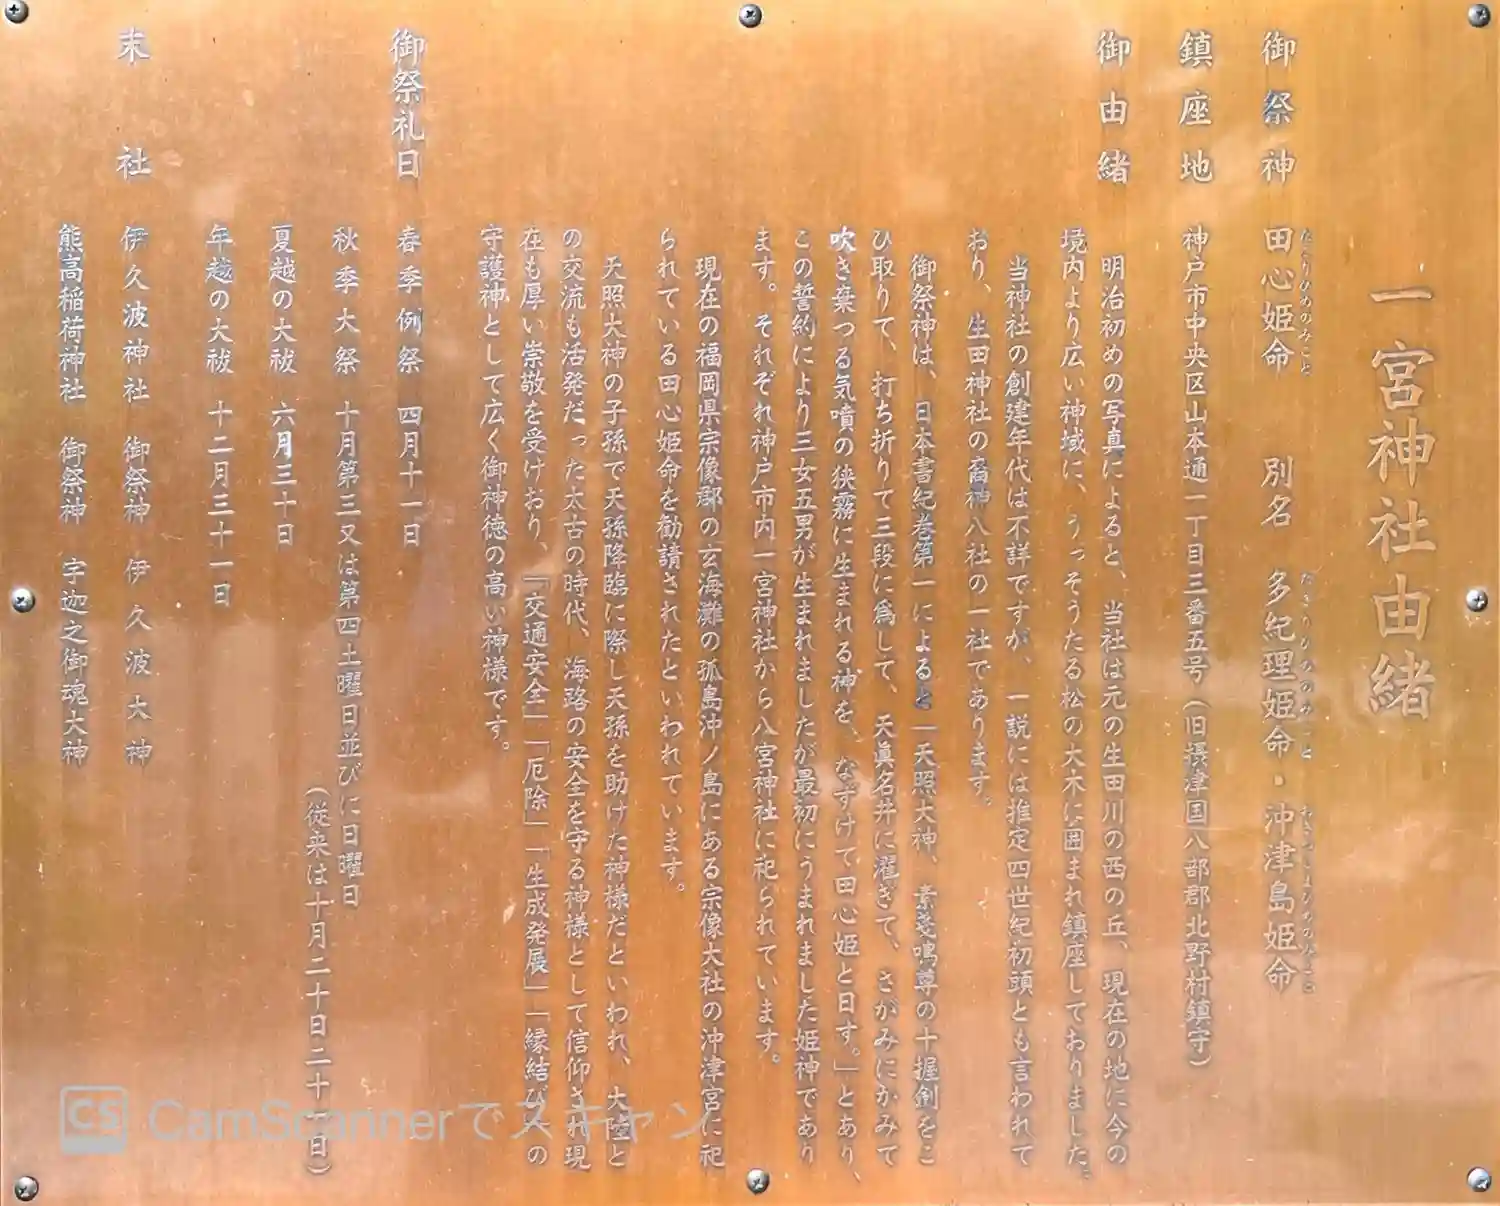 一宮神社由緒
御祭神 田心姫命 別名 多紀理姫命・沖津島姫命
たごりひめのみこと たぎりひめのみこと おきつしまひめのみこと
鎮座地 神戸市中央区山本通一丁目三番五号(旧摂津国八部郡北野村鎮守)
御由緒 明治初めの写真によると、当社は元の生田川の西の丘、現在の地に今の
境内より広い神域に、うっそうたる松の大木に囲まれ鎮座しておりました。
当神社の創建年代は不詳ですが、一説には推定四世紀初頭とも言われて
おり、生田神社の裔神八社の一社であります。
御祭神は、日本書紀巻第一によると「天照大神、素戔鳴尊の十握剣をこ
ひ取りて、打ち折りて三段に爲して、天眞名井に濯ぎて、さがみにかみて
吹き棄つる気噴の狭霧に生まれる神を、なずけて田心姫と日す。」とあり、
この誓約により三女五男が生まれましたが最初にうまれました姫神であり
ます。それぞれ神戸市内一宮神社から八宮神社に祀られています。
現在の福岡県宗像郡の玄海灘の孤島沖ノ島にある宗像大社の沖津宮に祀
られている田心姫命を勧請されたといわれています。
天照大神の子孫で天孫降臨に際し天孫を助けた神様だといわれ、大陸と
の交流も活発だった太古の時代、海路の安全を守る神様として信仰され現
在も厚い崇敬を受けおり、「交通安全」「厄除」「生成発展」「縁結び」の
守護神として広く御神徳の高い神様です。
御祭礼日 春季例祭 四月十一日
秋季大祭 十月第三又は第四土曜日並びに日曜日
(従来は十月二十日二十一日)
夏越の大祓 六月三十日
年越の大祓 十二月三十一日
末社 伊久波神社 御祭神 伊久波大神
熊高稲荷神社 御祭神 宇迦之御魂大神
CS CamScannerでスキャン